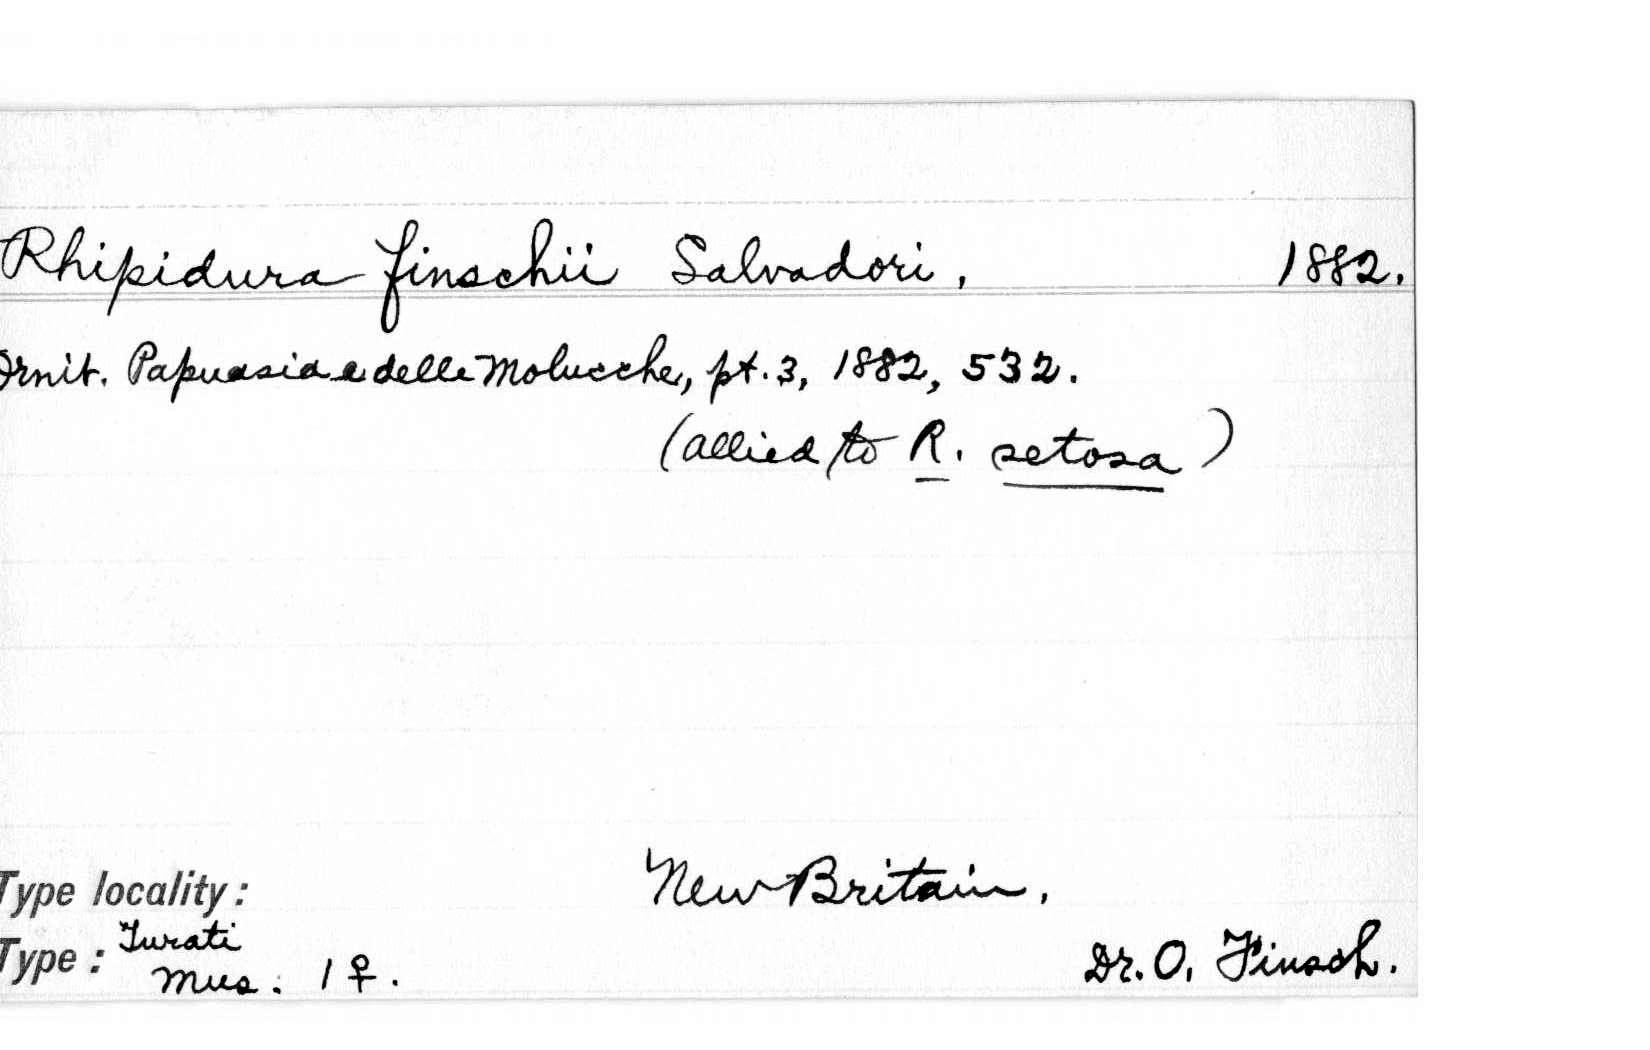 Rhipidura finschii Salvadori, 1882.
Ornit. Papuasia e delle Molucche, pt. 3, 1882, 532.
(allied to R. setosa)
Type locality: New Britain,
Type: Turati Mus. 1♀. Dr. O. Finsch.